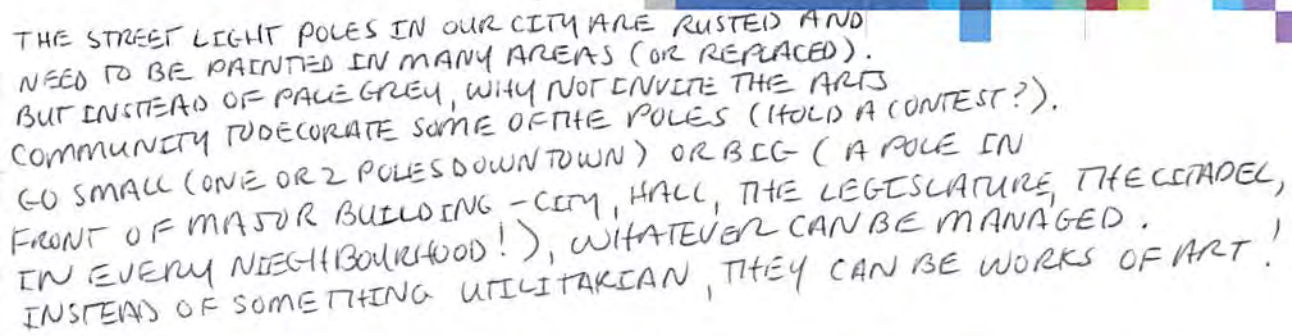 THE STREET LIGHT POLES IN OUR CITY ARE RUSTED AND
NEED TO BE PAINTED IN MANY AREAS (OR REPLACED).
BUT INSTEAD OF PALE GREY, WHY NOT INVITE THE ARTS
COMMUNITY TO DECORATE SOME OF THE POLES (HOLD A CONTEST?).
GO SMALL (ONE OR 2 POLES DOWNTOWN) OR BIG (A POLE IN
FRONT OF MAJOR BUILDING - CITY, HALL, THE LEGISLATURE, THE CITADEL,
IN EVERY NIEGHBOURHOOD!), WHATEVER CAN BE MANAGED.
INSTEAD OF SOMETHING UTILITARIAN, THEY CAN BE WORKS OF ART!